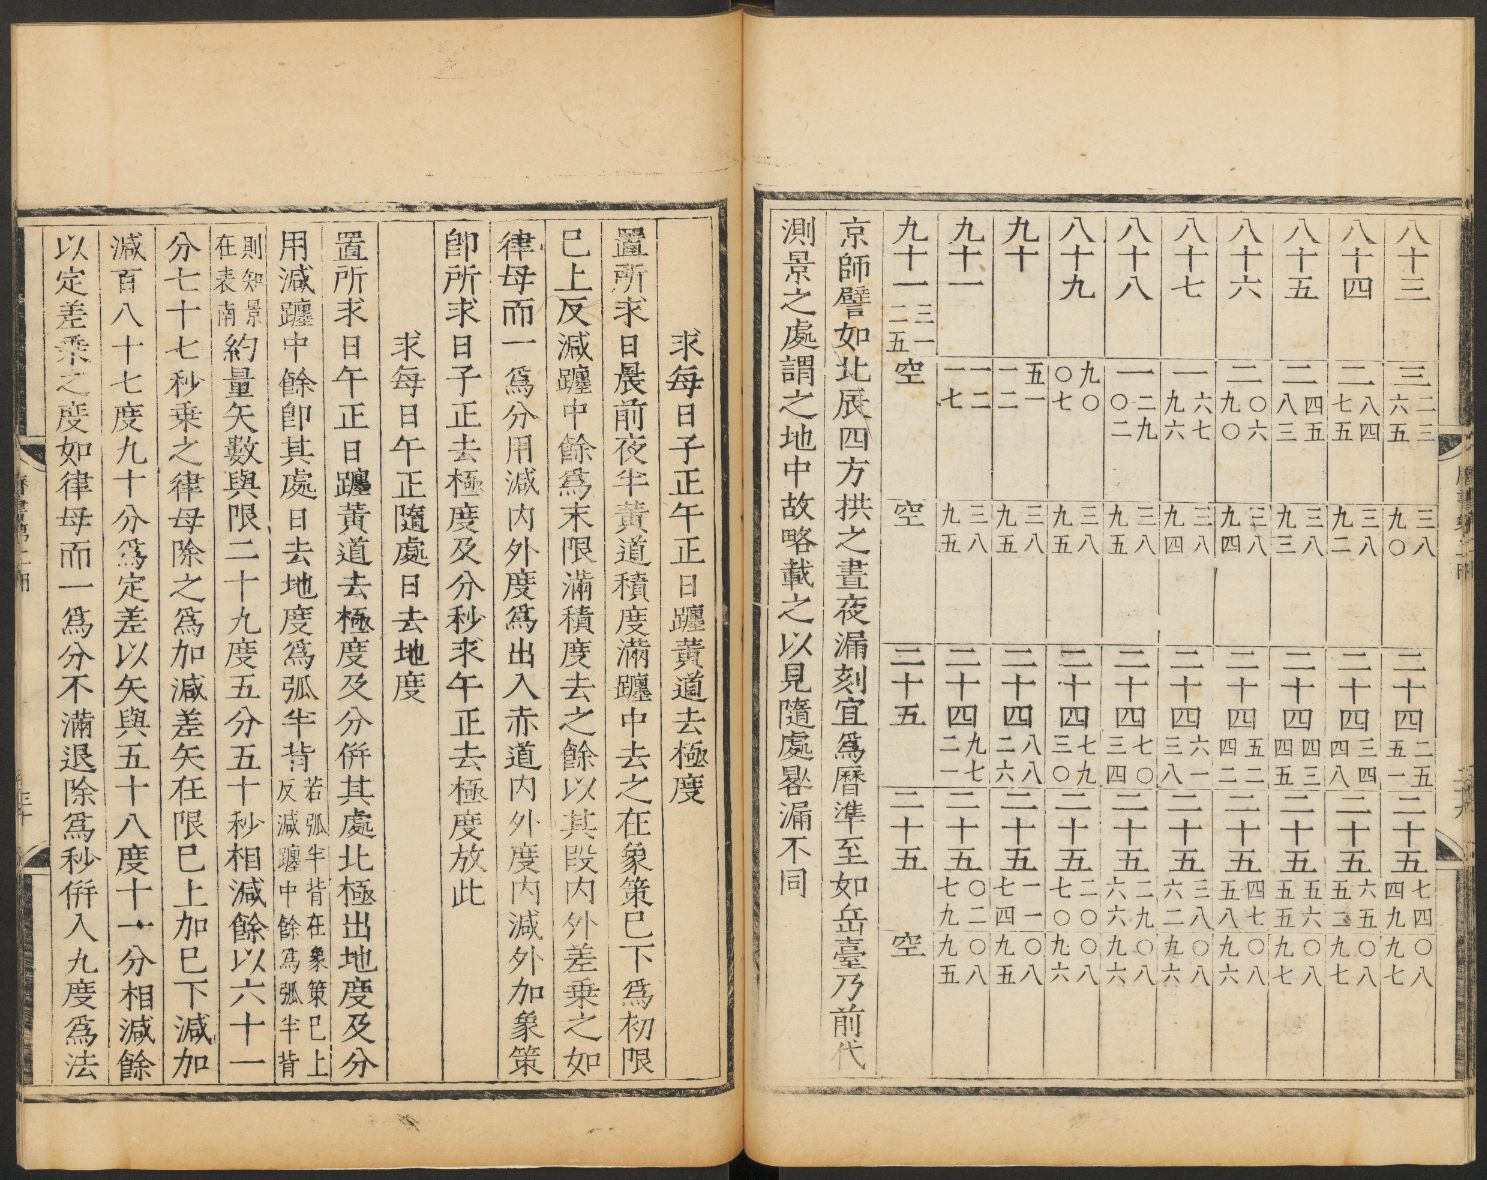 八十三 三二三六五 三八九〇 二十四二五五一 二十五七四四九 〇八九七
八十四 二八四七五 三八九二 二十四三四四八 二十五六五五二 〇八九七
八十五 二四五八三 三八九三 二十四四三四五 二十五五六五五 〇八九七
八十六 二〇六九〇 三八九四 二十四五二四二 二十五四七五八 〇八九六
八十七 一六七九六 三八九四 二十四六一三八 二十五三八六二 〇八九六
八十八 一二九〇二 三八九五 二十四七〇三四 二十五二九六六 〇八九六
八十九 九〇〇七 三八九五 二十四七九三〇 二十五二〇七〇 〇八九六
九十 五一一二 三八九五 二十四八八二六 二十五一一七四 〇八九五
九十一 一二一七 三八九五 二十四九七二一 二十五〇二七九 〇八九五
九十一三一二五 空 空 二十五 二十五 空
京師譬如北辰四方拱之晝夜漏刻宜爲曆準至如岳臺乃前代
測景之處謂之地中故略載之以見隨處晷漏不同
求每日子正午正日躔黃道去極度
置所求日晨前夜半黃道積度滿躔中去之在象策已下爲初限
已上反減躔中餘爲末限滿積度去之餘以其段內外差乗之如
律母而一爲分用減內外度爲出入赤道內外度內減外加象策
卽所求日子正去極度及分秒求午正去極度放此
求每日午正隨處日去地度
置所求日午正日躔黃道去極度及分倂其處北極出地度及分
用減躔中餘卽其處日去地度爲弧半背若弧半背在象策已上反減躔中餘爲弧半背
則知景在表南約量矢數與限二十九度五分五十秒相減餘以六十一
分七十七秒乗之律母除之爲加減差矢在限已上加已下減加
減百八十七度九十分爲定差以矢與五十八度十一分相減餘
以定差乗之度如律母而一爲分不滿退除爲秒倂入九度爲法